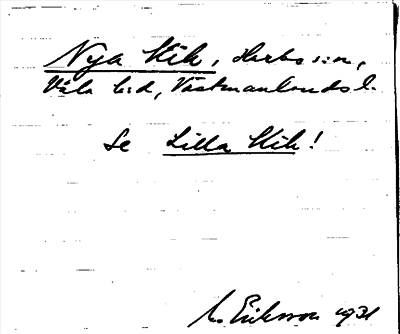 Nya Kik, Harbo sn,
Våla hd, Västmanlands l.
Se Lilla Kik!
M. Eriksson 1931